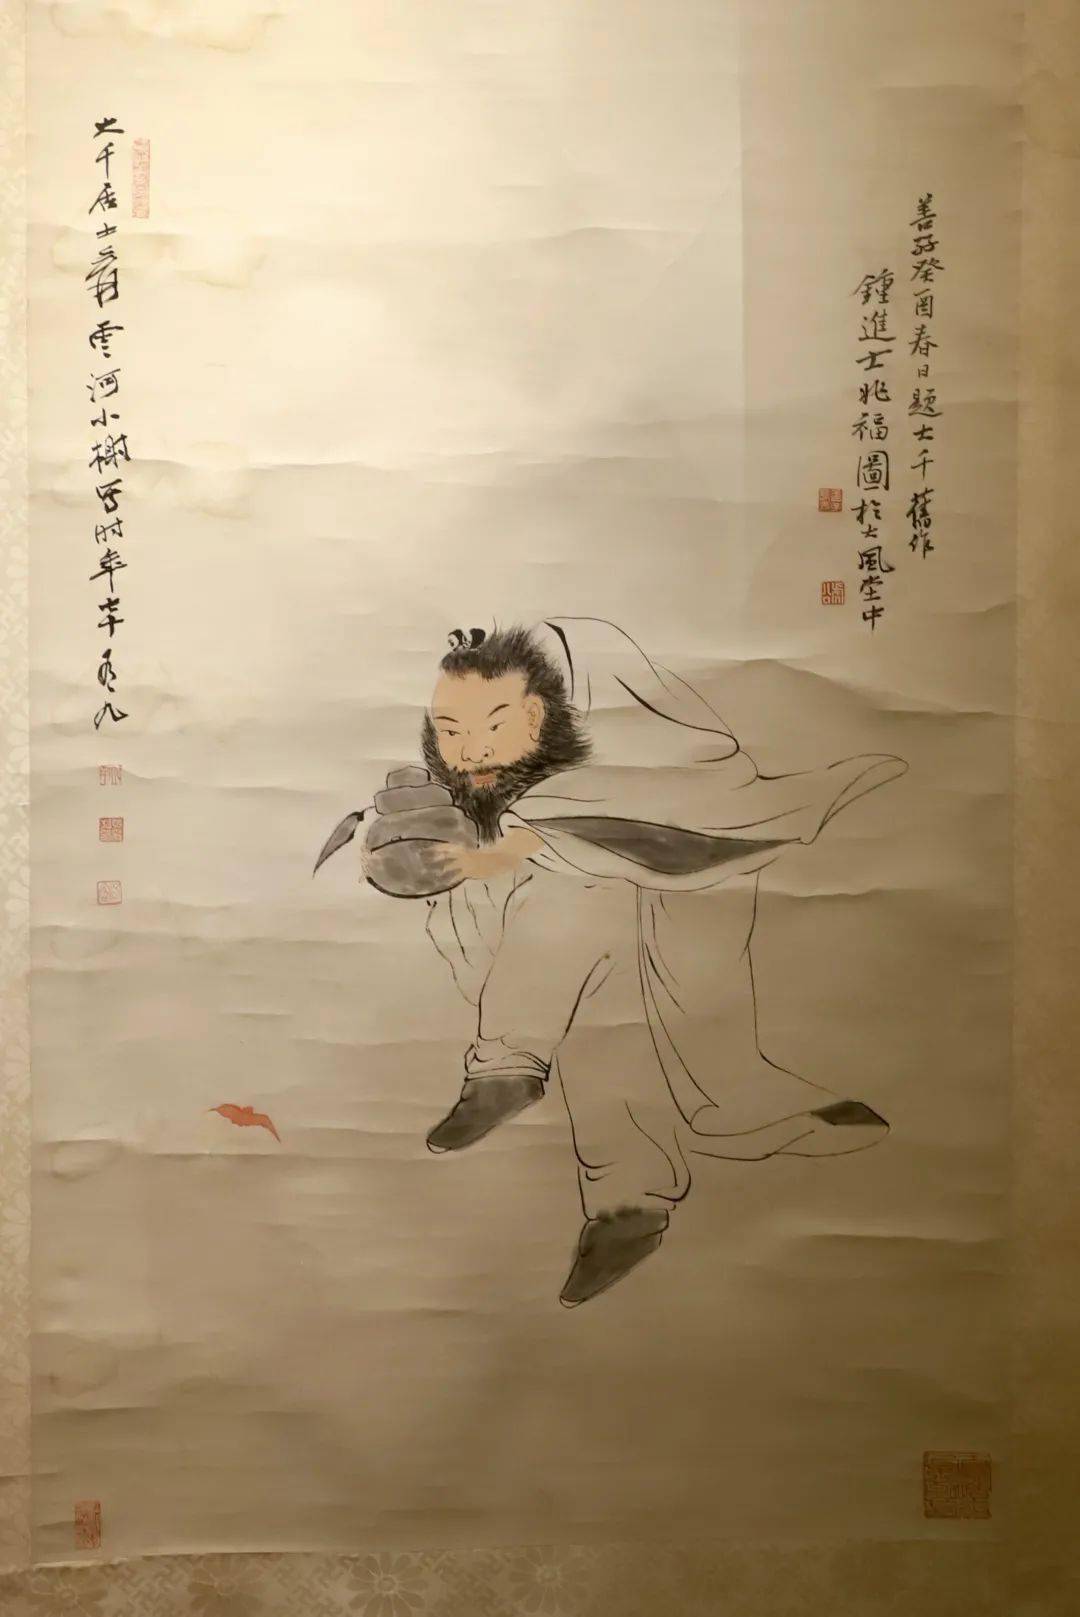 善孖癸酉春日題大千舊作
鍾進士兆福圖於大風堂中
大千居士爰雲河小榭寫时年七十有九